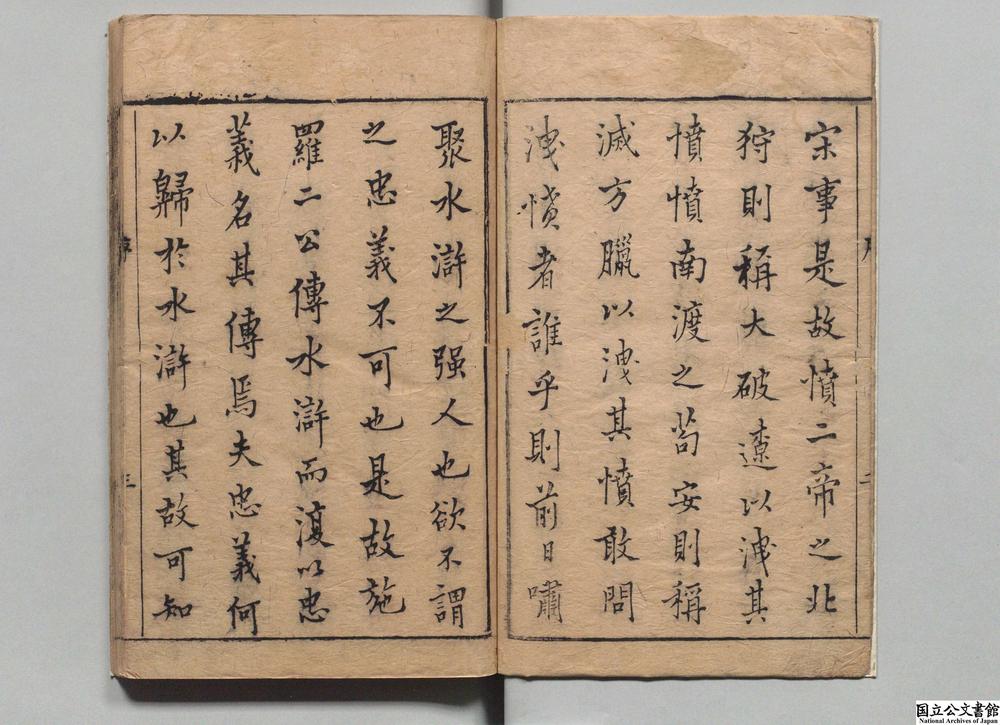 宋事是故憤二帝之北
狩則稱大破遼以洩其
憤憤南渡之苟安則稱
滅方臘以洩其憤敢問
洩憤者誰乎則前日嘯
聚水滸之强人也欲不謂
之忠義不可也是故施
羅二公傳水滸而復以忠
義名其傳焉夫忠義何
以歸於水滸也其故可知
序
三
国立公文書館
National Archives of Japan